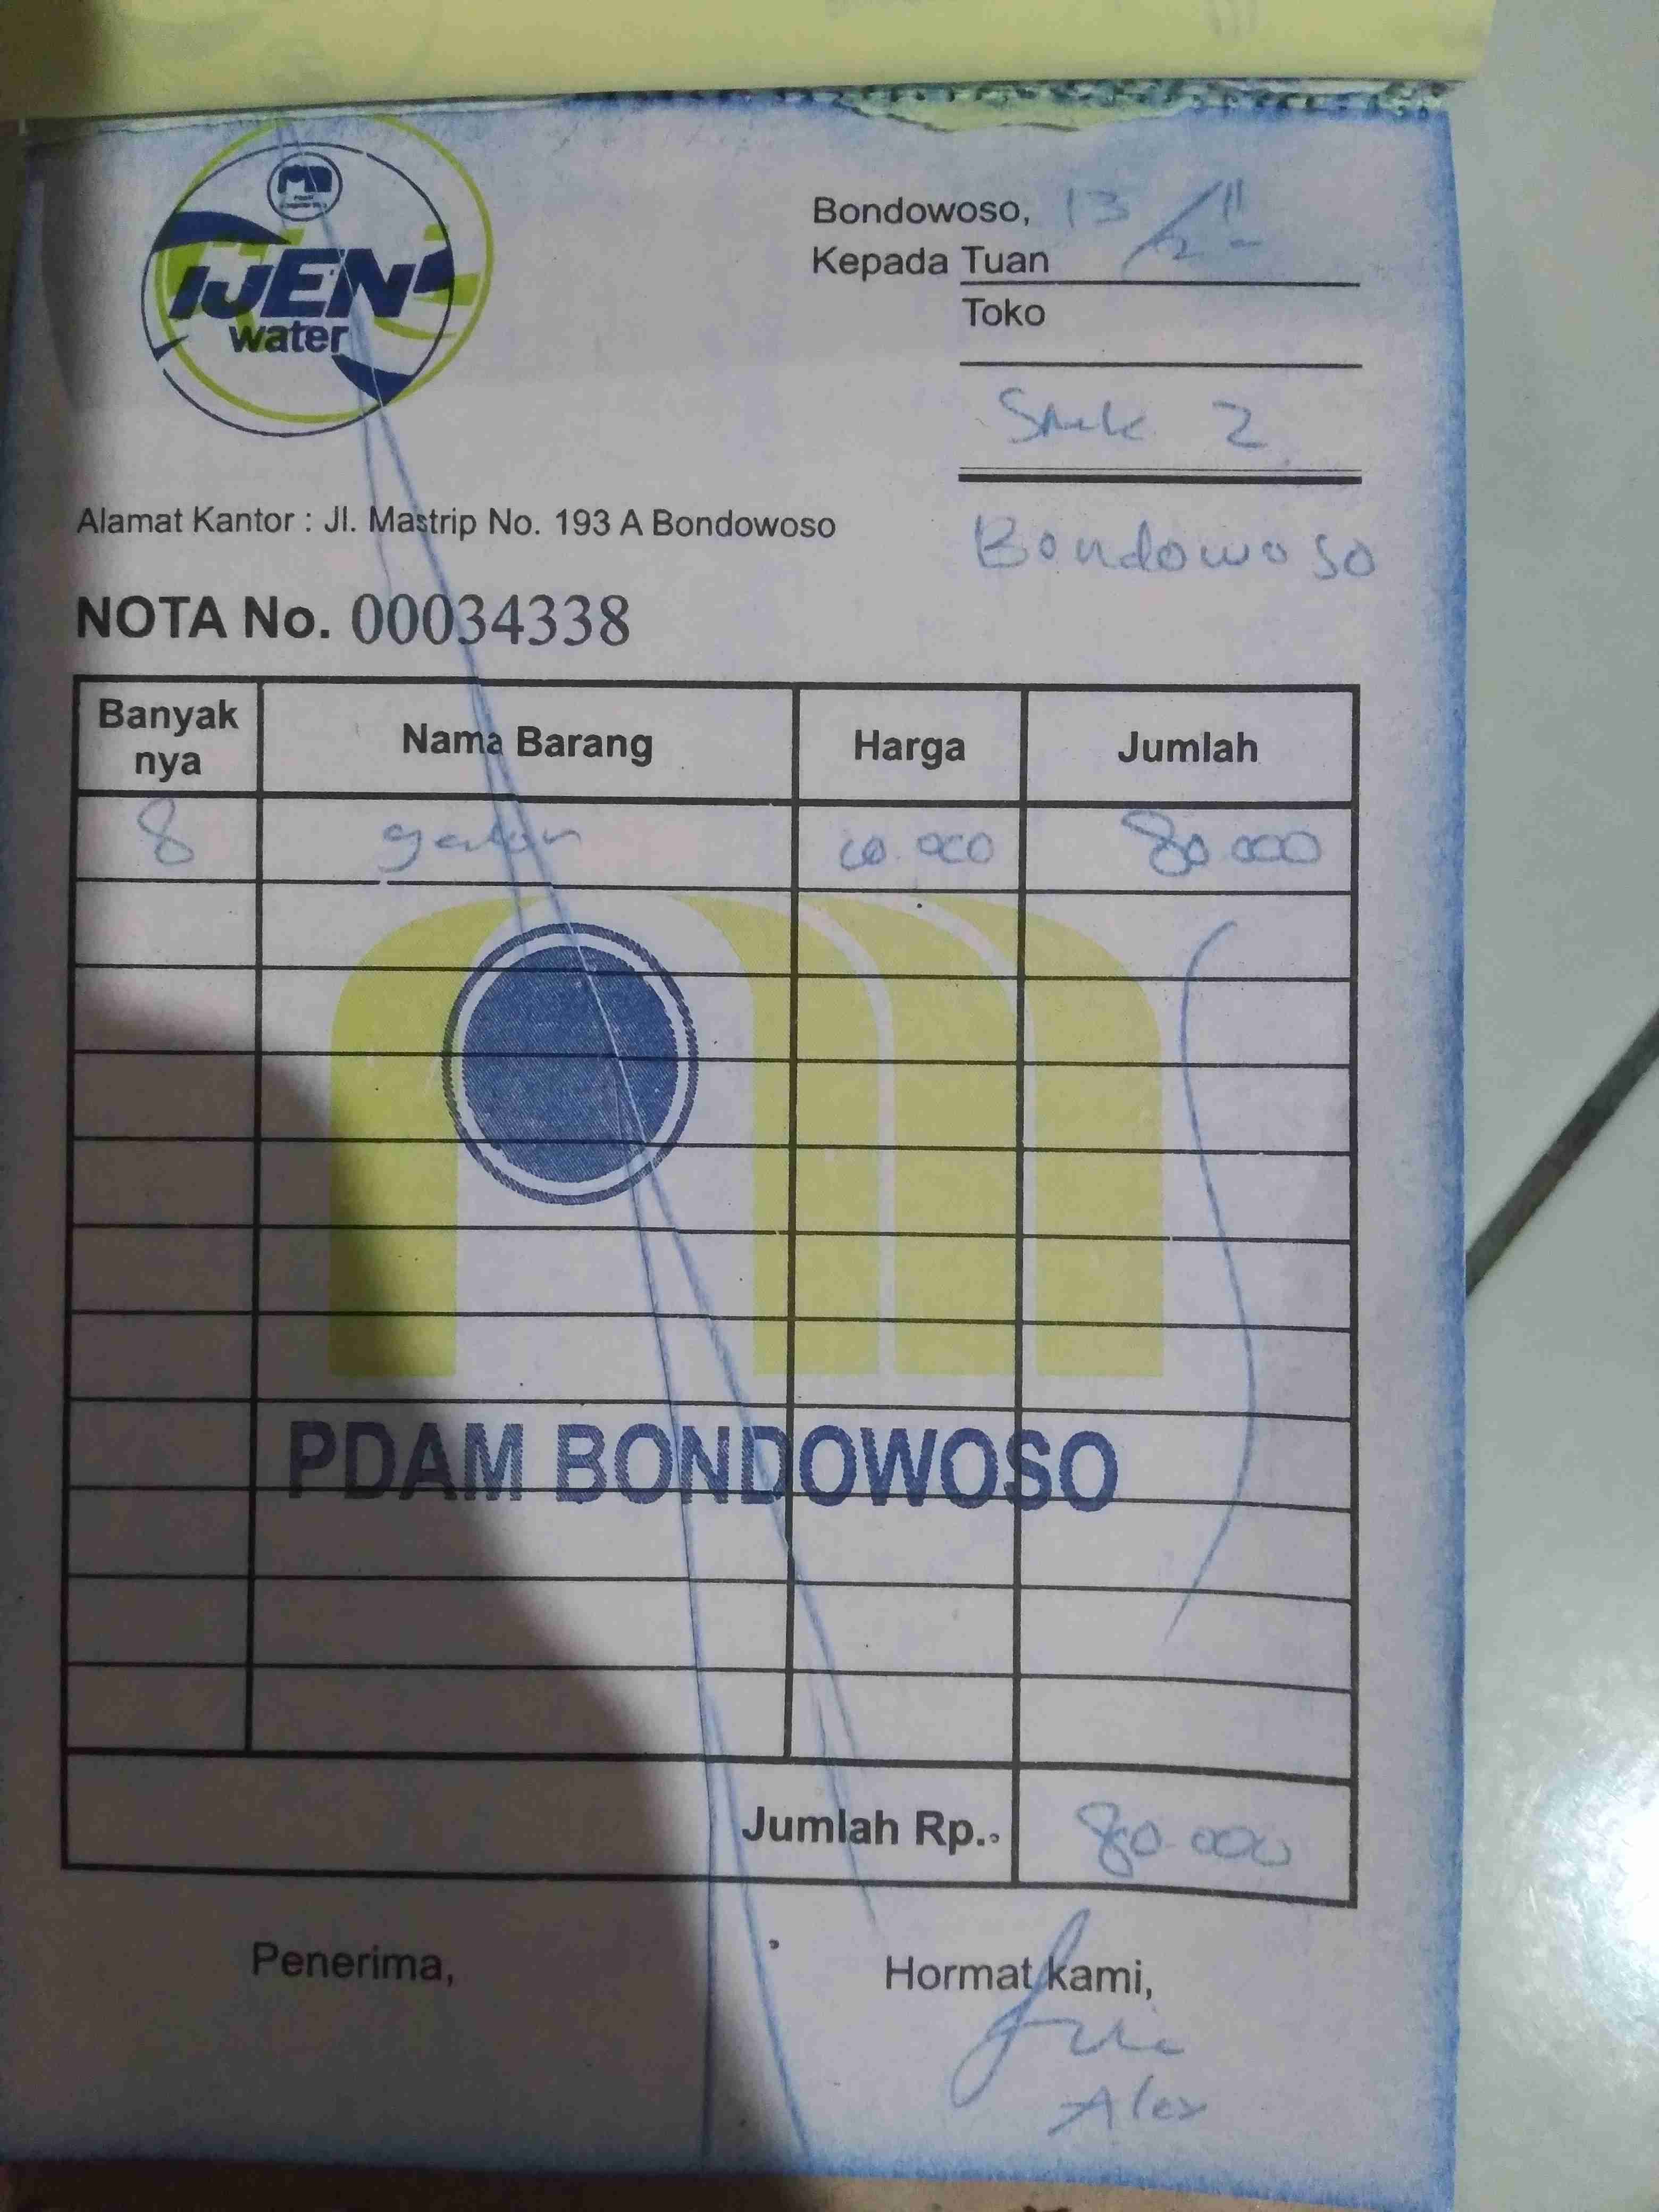 IJEN
water
Bondowoso, 13
Kepada Tuan
Toko
Smk 2
Bondowoso
Alamat Kantor : Jl. Mastrip No. 193 A Bondowoso
NOTA No. 00034338
Banyak nya Nama Barang Harga Jumlah
8 galon 10.000 80.000
PDAM BONDOWOSO
Jumlah Rp. 80.000
Penerima, Hormat kami,
Alex